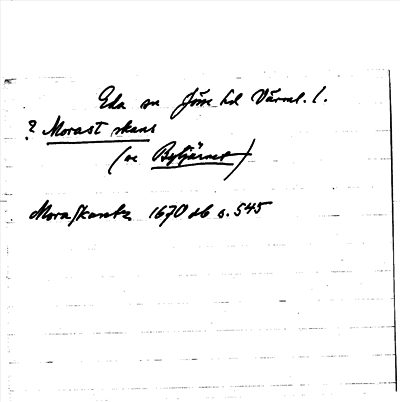 Eda sn Jösse hd Värml. l.
? Morast skans
(se Bytjärnet)
Moraskantz 1670 db s. 545